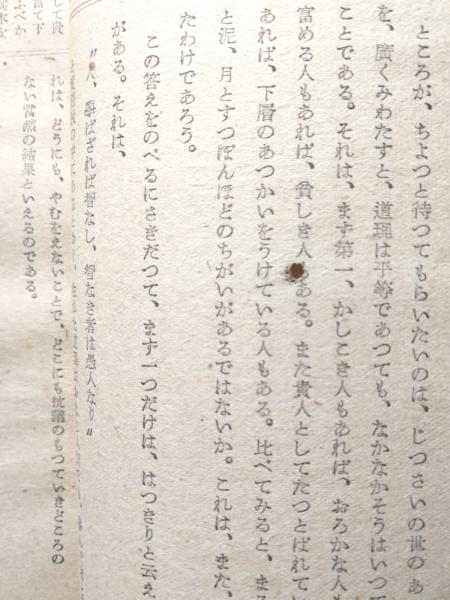 ところが、ちよつと待つてもらいたいのは、じつさいの世のあ
を、廣くみわたすと、道理は平等であつても、なかなかそうはいつて
ことである。それは、まず第一、かしこき人もあれば、おろかな人も
富める人もあれば、貧しき人もある。また貴人としてたつとばれてい
あれば、下層のあつかいをうけている人もある。比べてみると、まる
と泥、月とすつぽんほどのちがいがあるではないか。これは、また、
たわけであろう。
この答えをのべるにさきだつて、まず一つだけは、はつきりと云え
がある。それは、
〝人、學ばざれば智なし、智なき者は愚人なり〟
れは、どうにも、やむをえないことで、どこにも抗議のもつていきどころの
ない当然の結果といえるのである。
して貴
富て下
ふべか